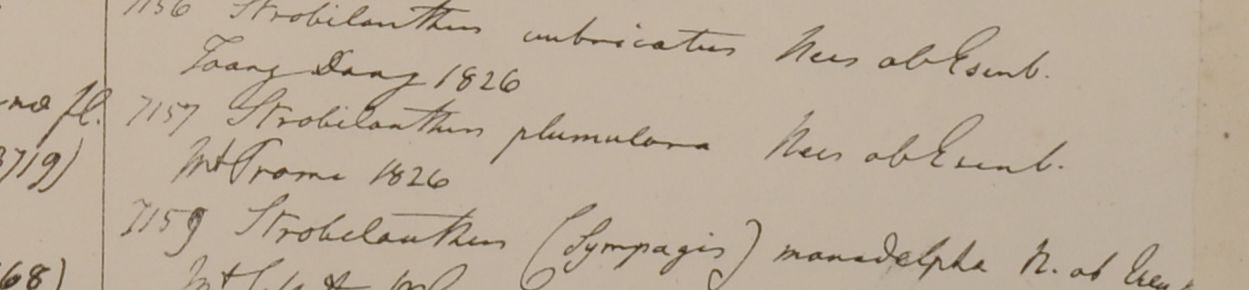 7156 Strobilanthus imbricatus Nees ab Esenb.
Toong Dong 1826
no fl. 7157 Strobilanthus plumulosa Nees ab Esenb.
3719) Mt Prome 1826
7159 Strobelanthus (Sympagis) monadelpha N. ab Esen
68)